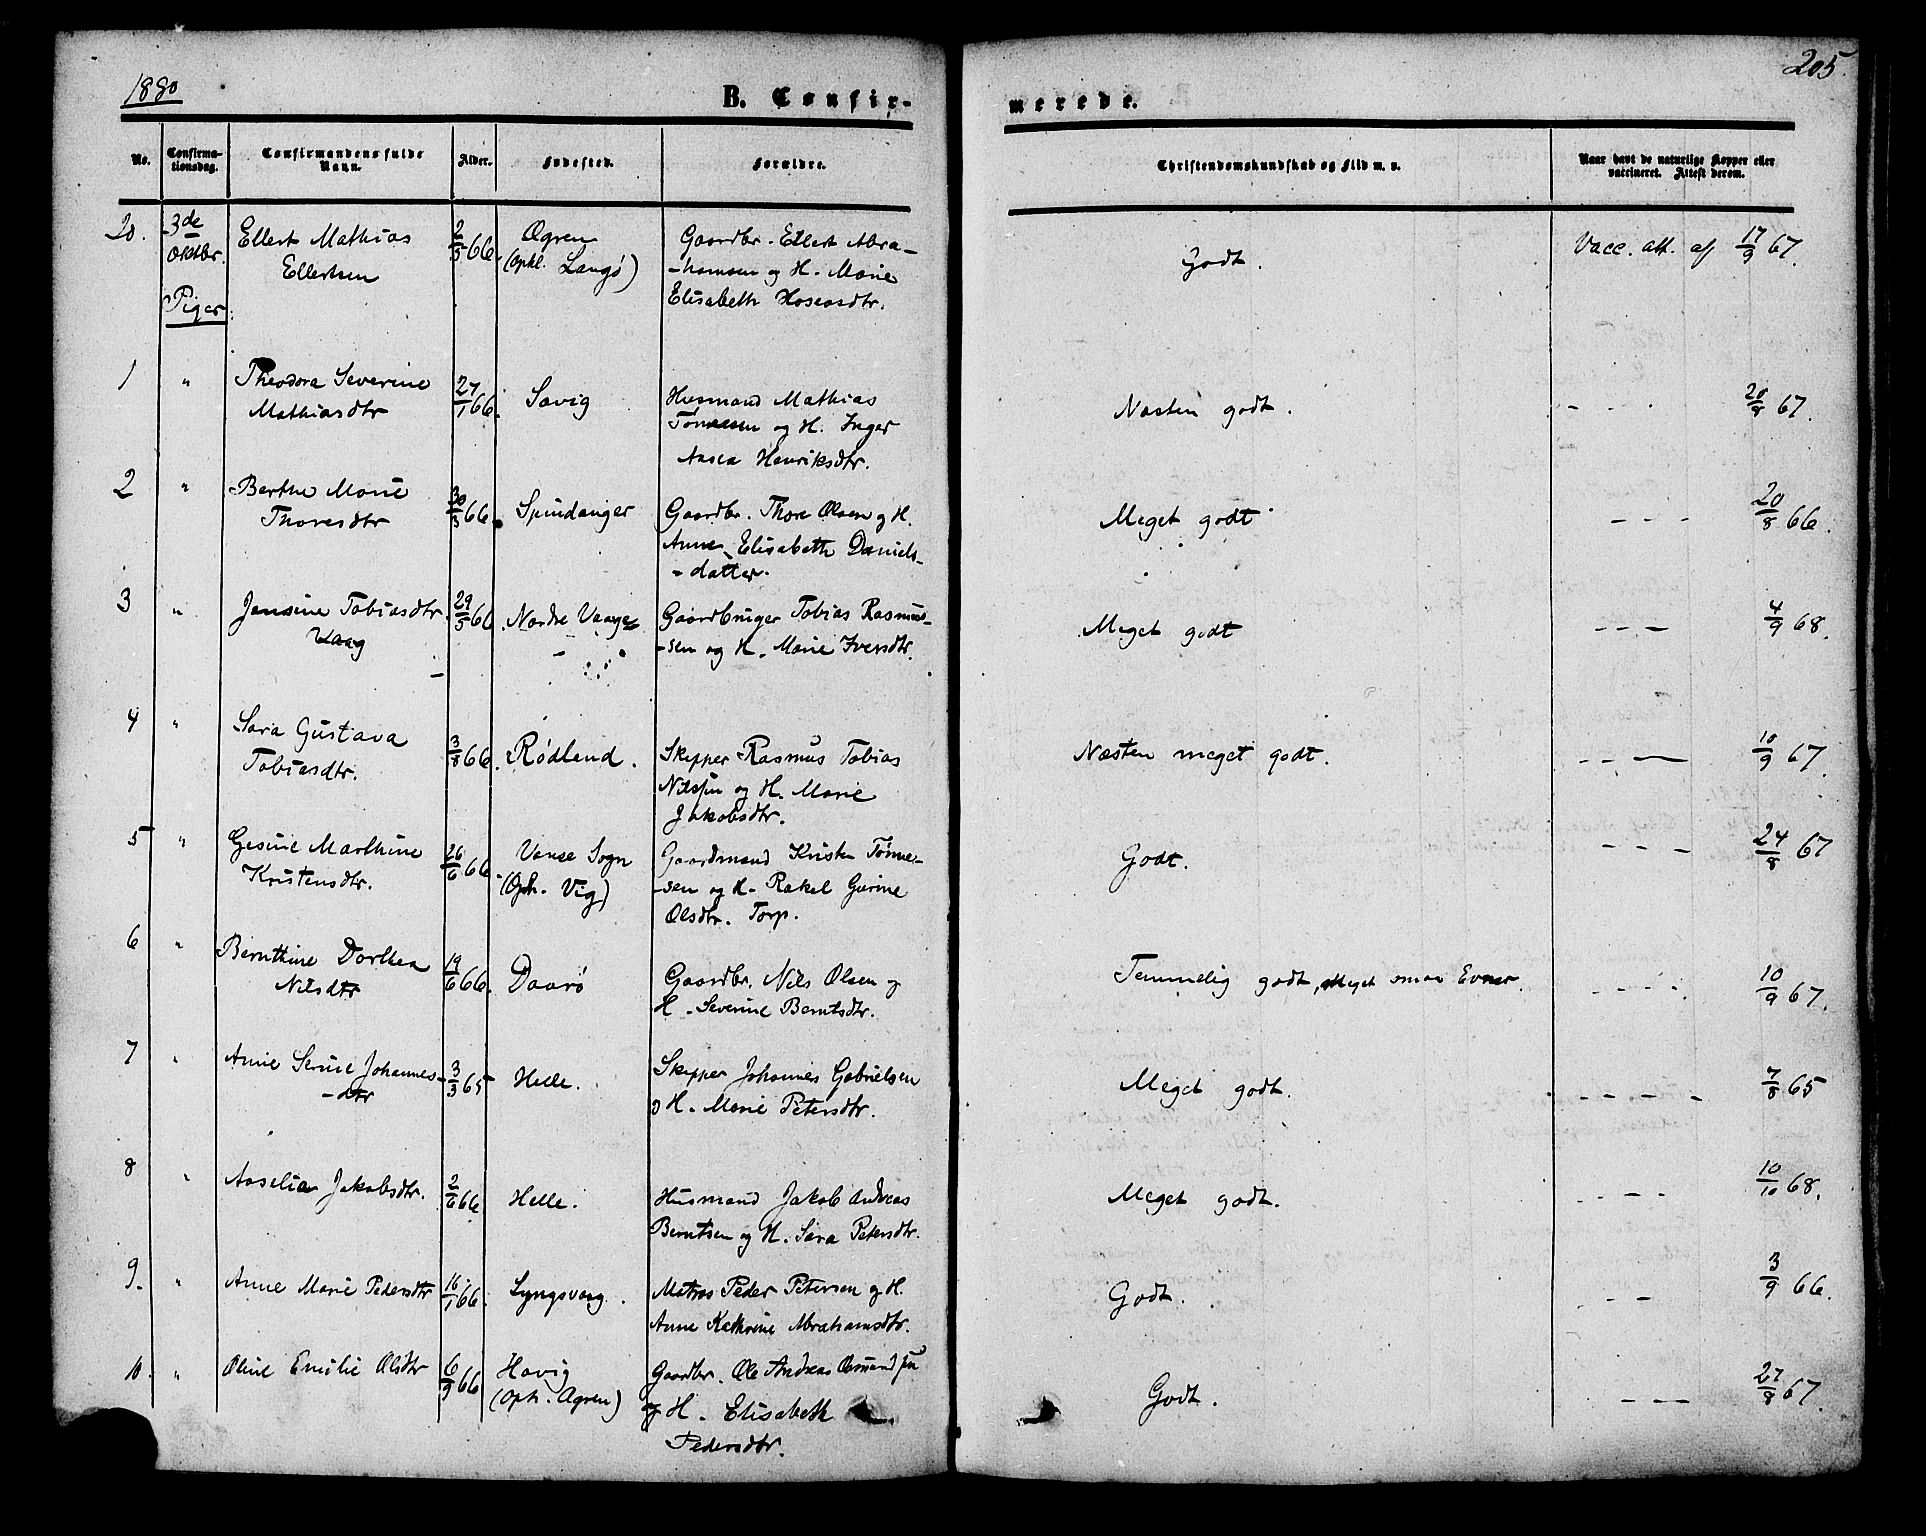 1880
205.
B. Confir-
merede.
No.
Confirma-
tionsdag.
Confirmandens fulde
Navn.
Alder.
Indested.
Forældre.
Christendomskundskab og Flid m. v.
Naar havt de naturlige Kopper eller
vaccineret. Attest derom.
20. 3de Oktbr. Ellert Mathias 2/5 66. Ogren Gaardbr. Ellert Abra- Godt. Vacc. att. af 17/9 67.
Ellertsen (Opht. Langø) -hamsen og H. Marie
Elisabeth Hoseasdtr.
Piger
1 " Theodora Severine 27/1 66. Savig Husmand Mathias Næsten godt. - - - 20/8 67.
Mathiasdtr Tønnessen og H. Inger
Aasea Henriksdtr.
2 " Berthe Marie 30/3 66. Spindanger Gaardbr. Thore Olsen og H. Meget godt - - - 20/8 66.
Thoresdtr Anne Elisabeth Daniels-
-datter.
3 " Jensine Tobiasdtr. 29/5 66 Nordre Vaage Gaardbruger Tobias Rasmus- Meget godt - - - 4/9 68.
Vaag -sen og H. Marie Iversdtr.
4 " Sara Gustava 3/8 66. Rødland. Skipper Rasmus Tobias Næsten meget godt. - - - 10/9 67.
Tobiasdtr. Nilssen og H. Marie
Jakobsdtr.
5 " Gesine Marthine 26/6 66. Vanse Sogn Gaardmand Kristen Tønne- Godt. - - - 24/8 67
Kristensdtr. (Oph. Vig) -sen og H. Rakel Gurine
Olsdtr. Torp.
6 " Bernthine Dorthea 19/6 66. Daarø Gaardbr. Nils Olsen og Temmelig godt, meget smaa Evner. - - - - 10/9 67.
Nilsdtr H. Severine Berntsdtr.
7 " Anne Serine Johannes- 3/3 65 Helle. Skipper Johannes Gabrielsen Meget godt. - - - - 7/8 65
-dtr o H. Marie Petersdtr.
8 " Aaselia Jakobsdtr. 2/6 66 Helle. Husmand Jakob Andreas Meget godt. - - - 10/10 68.
Berntsen og H. Sara Petersdtr.
9. " Anne Marie Pedersdtr 16/1 66. Lyngsvaag. Matros Peder Petersen og H. Godt. - - - 3/9 66.
Anne Kathrine Abrahamsdtr.
10. " Oline Emilie Olsdtr 6/3 66 Havig Gaardbr. Ole Andreas Osmundsen Godt. - - - 27/8 67.
(Oph. Agren) og H. Elisabeth
Pedersdtr.